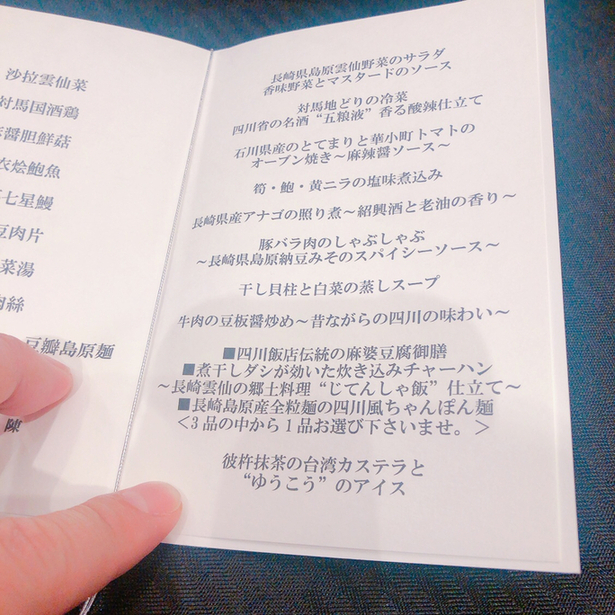 沙拉雲仙菜
対馬国酒鶏
醤胆鮮菇
衣烩鮑魚
七星鰻
豆肉片
菜湯
肉絲
豆瓣島原麺
陳
長崎県島原雲仙野菜のサラダ
香味野菜とマスタードのソース
対馬地どりの冷菜
四川省の名酒“五粮液”香る酸辣仕立て
石川県産のとてまりと華小町トマトの
オーブン焼き～麻辣醤ソース～
筍・鮑・黄ニラの塩味煮込み
長崎県産アナゴの照り煮～紹興酒と老油の香り～
豚バラ肉のしゃぶしゃぶ
～長崎県島原納豆みそのスパイシーソース～
干し貝柱と白菜の蒸しスープ
牛肉の豆板醤炒め～昔ながらの四川の味わい～
■四川飯店伝統の麻婆豆腐御膳
■煮干しダシが効いた炊き込みチャーハン
～長崎雲仙の郷土料理“じてんしゃ飯”仕立て～
■長崎島原産全粒麺の四川風ちゃんぽん麺
＜3品の中から1品お選び下さいませ。＞
彼杵抹茶の台湾カステラと
“ゆうこう”のアイス